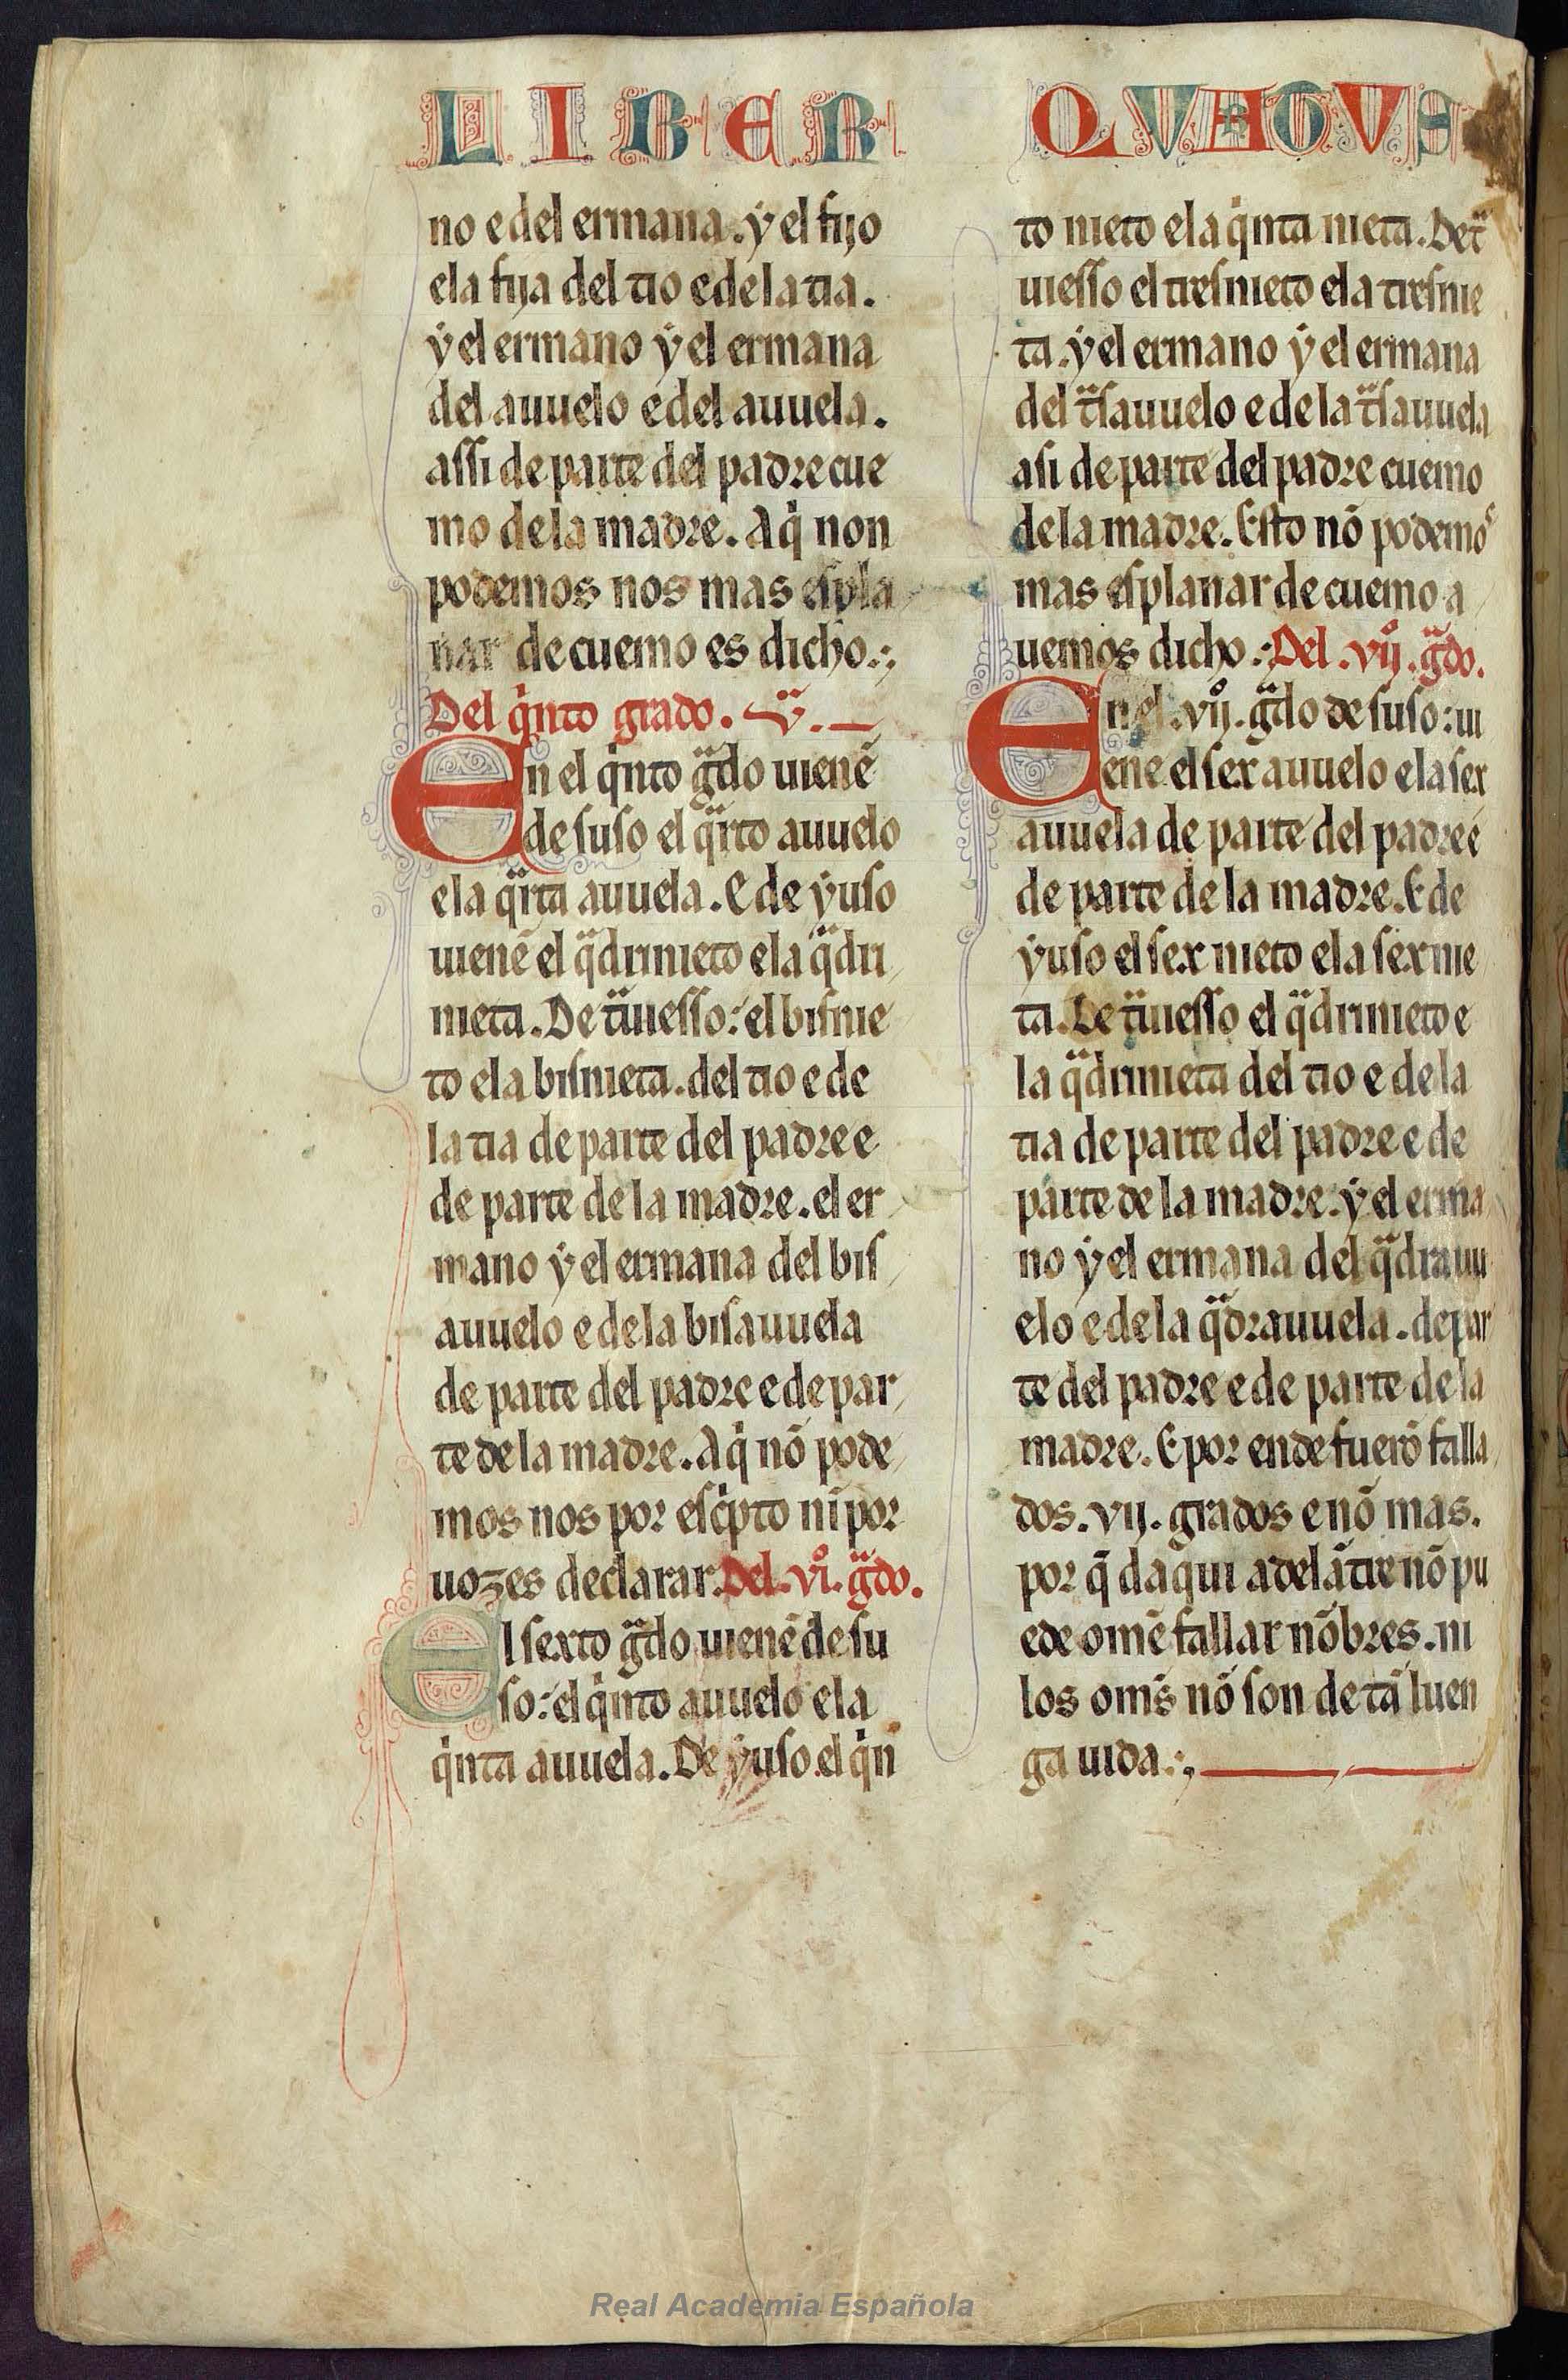 LIBER QUARTUS
no e del ermana. ẏ el fijo
e la fija del tio e de la tia.
ẏ el ermano ẏ el ermana
del auuelo e del auuela.
assi de parte del padre cue
mo de la madre. Aq̇ non
podemos nos mas espla
nar de cuemo es dicho.:,
Del q̇nto grado. v̈.
En el q̇nto g̈do uienē
de suso el q̈rto auuelo
e la q̈rta auuela. E de ẏuso
uienē el q̈drinieto e la q̈dri
nieta. De ẗuiesso: el bisnie
to e la bisnieta. del tio e de
la tia de parte del padre e
de parte de la madre. el er
mano ẏ el ermana del bis
auuelo e de la bisauuela
de parte del padre e de par
te de la madre. Aq̇ nō pode
mos nos por esċpto nī por
uozes declarar. Del .vi̊. g̈do.
El sexto g̈do uienē de su
so: el q̇nto auuelo e la
q̇nta auuela. De ẏuso el q̇n
to nieto e la q̇nta nieta. De ẗ
uiesso el tresnieto e la tresnie
ta. ẏ el ermano ẏ el ermana
del ẗsauuelo e de la ẗsauuela
asi de parte del padre cuemo
de la madre. Esto nō podemoˢ
mas esplanar de cuemo a
uemos dicho.: Del .vij̊. g̈do.
En el .vij̊. g̈do de suso: ui
ene el sex auuelo e la sex
auuela de parte del padre e
de parte de la madre. E de
ẏuso el sex nieto e la sex nie
ta. De ẗuiesso el q̈drinieto e
la q̈drinieta del tio e de la
tia de parte del padre e de
parte de la madre. ẏ el erma
no ẏ el ermana del q̈drauu
elo e de la q̈drauuela. de par
te del padre e de parte de la
madre. E por ende fuerō falla
dos .vij. grados e nō mas.
por q̄ daqui adelātre nō pu
ede omē fallar nōbres. ni
los om̄s nō son de tā luen
ga uida.:,
Real Academia Española